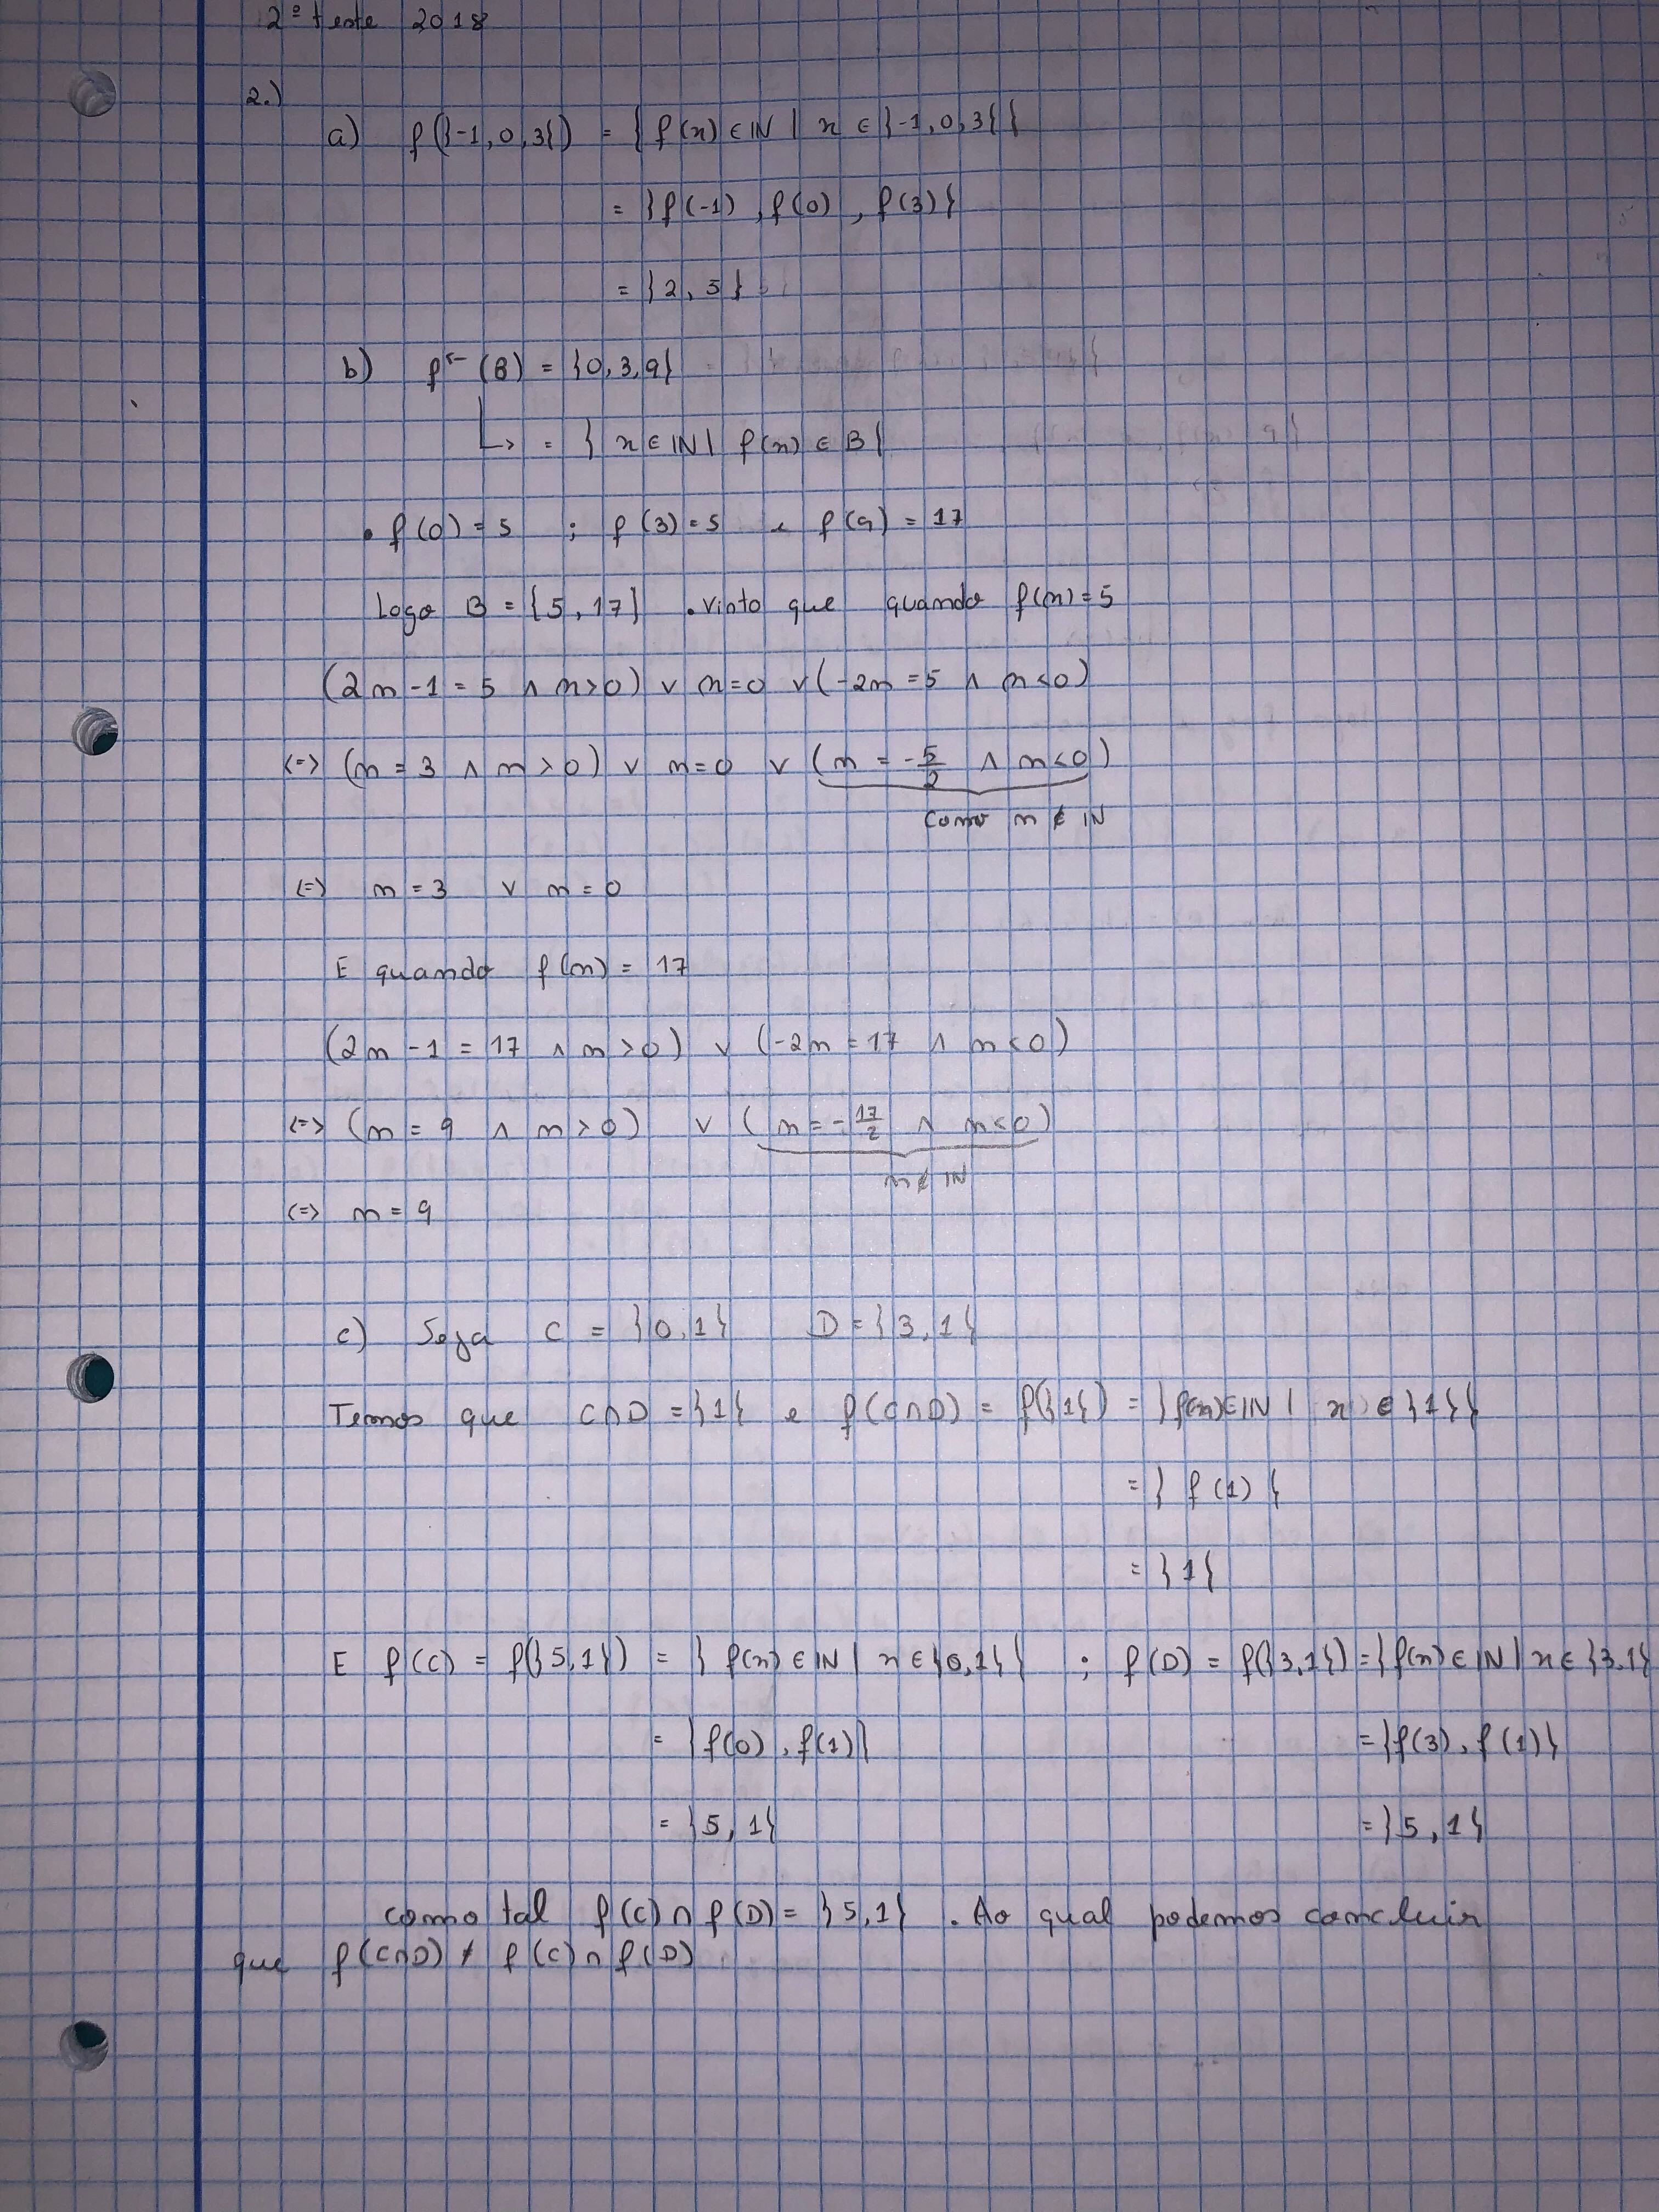 2º teste 2018
2.)
a) f({-1,0,3}) = { f(x) ∈ IN | x ∈ {-1,0,3} }
= {f(-1), f(0), f(3)}
= {2, 5}
b) f^← (B) = {0,3,9}
↳ = { x ∈ IN | f(x) ∈ B }
• f(0) = 5 ; f(3) = 5 e f(9) = 17
Logo B = {5, 17} . visto que quando f(n) = 5
(2n - 1 = 5 ∧ n > 0) ∨ n = 0 ∨ (-2n = 5 ∧ n < 0)
<=> (n = 3 ∧ n > 0) ∨ n = 0 ∨ (n = -5/2 ∧ n < 0)
como n ∉ IN
<=> n = 3 ∨ n = 0
E quando f(n) = 17
(2n - 1 = 17 ∧ n > 0) ∨ (-2n = 17 ∧ n < 0)
<=> (n = 9 ∧ n > 0) ∨ (n = -17/2 ∧ n < 0)
n ∉ IN
<=> n = 9
c) Seja C = {0,1} D = {3,1}
Temos que C∩D = {1} e f(C∩D) = f({1}) = {f(x) ∈ IN | x ∈ {1}}
= { f(1) }
= {1}
E f(C) = f({5,1}) = { f(x) ∈ IN | x ∈ {0,1} } ; f(D) = f({3,1}) = {f(x) ∈ IN | x ∈ {3,1}
= {f(0), f(1)} = {f(3), f(1)}
= {5, 1} = {5, 1}
como tal f(C) ∩ f(D) = {5,1} . Ao qual podemos concluir
que f(C∩D) ≠ f(C) ∩ f(D)